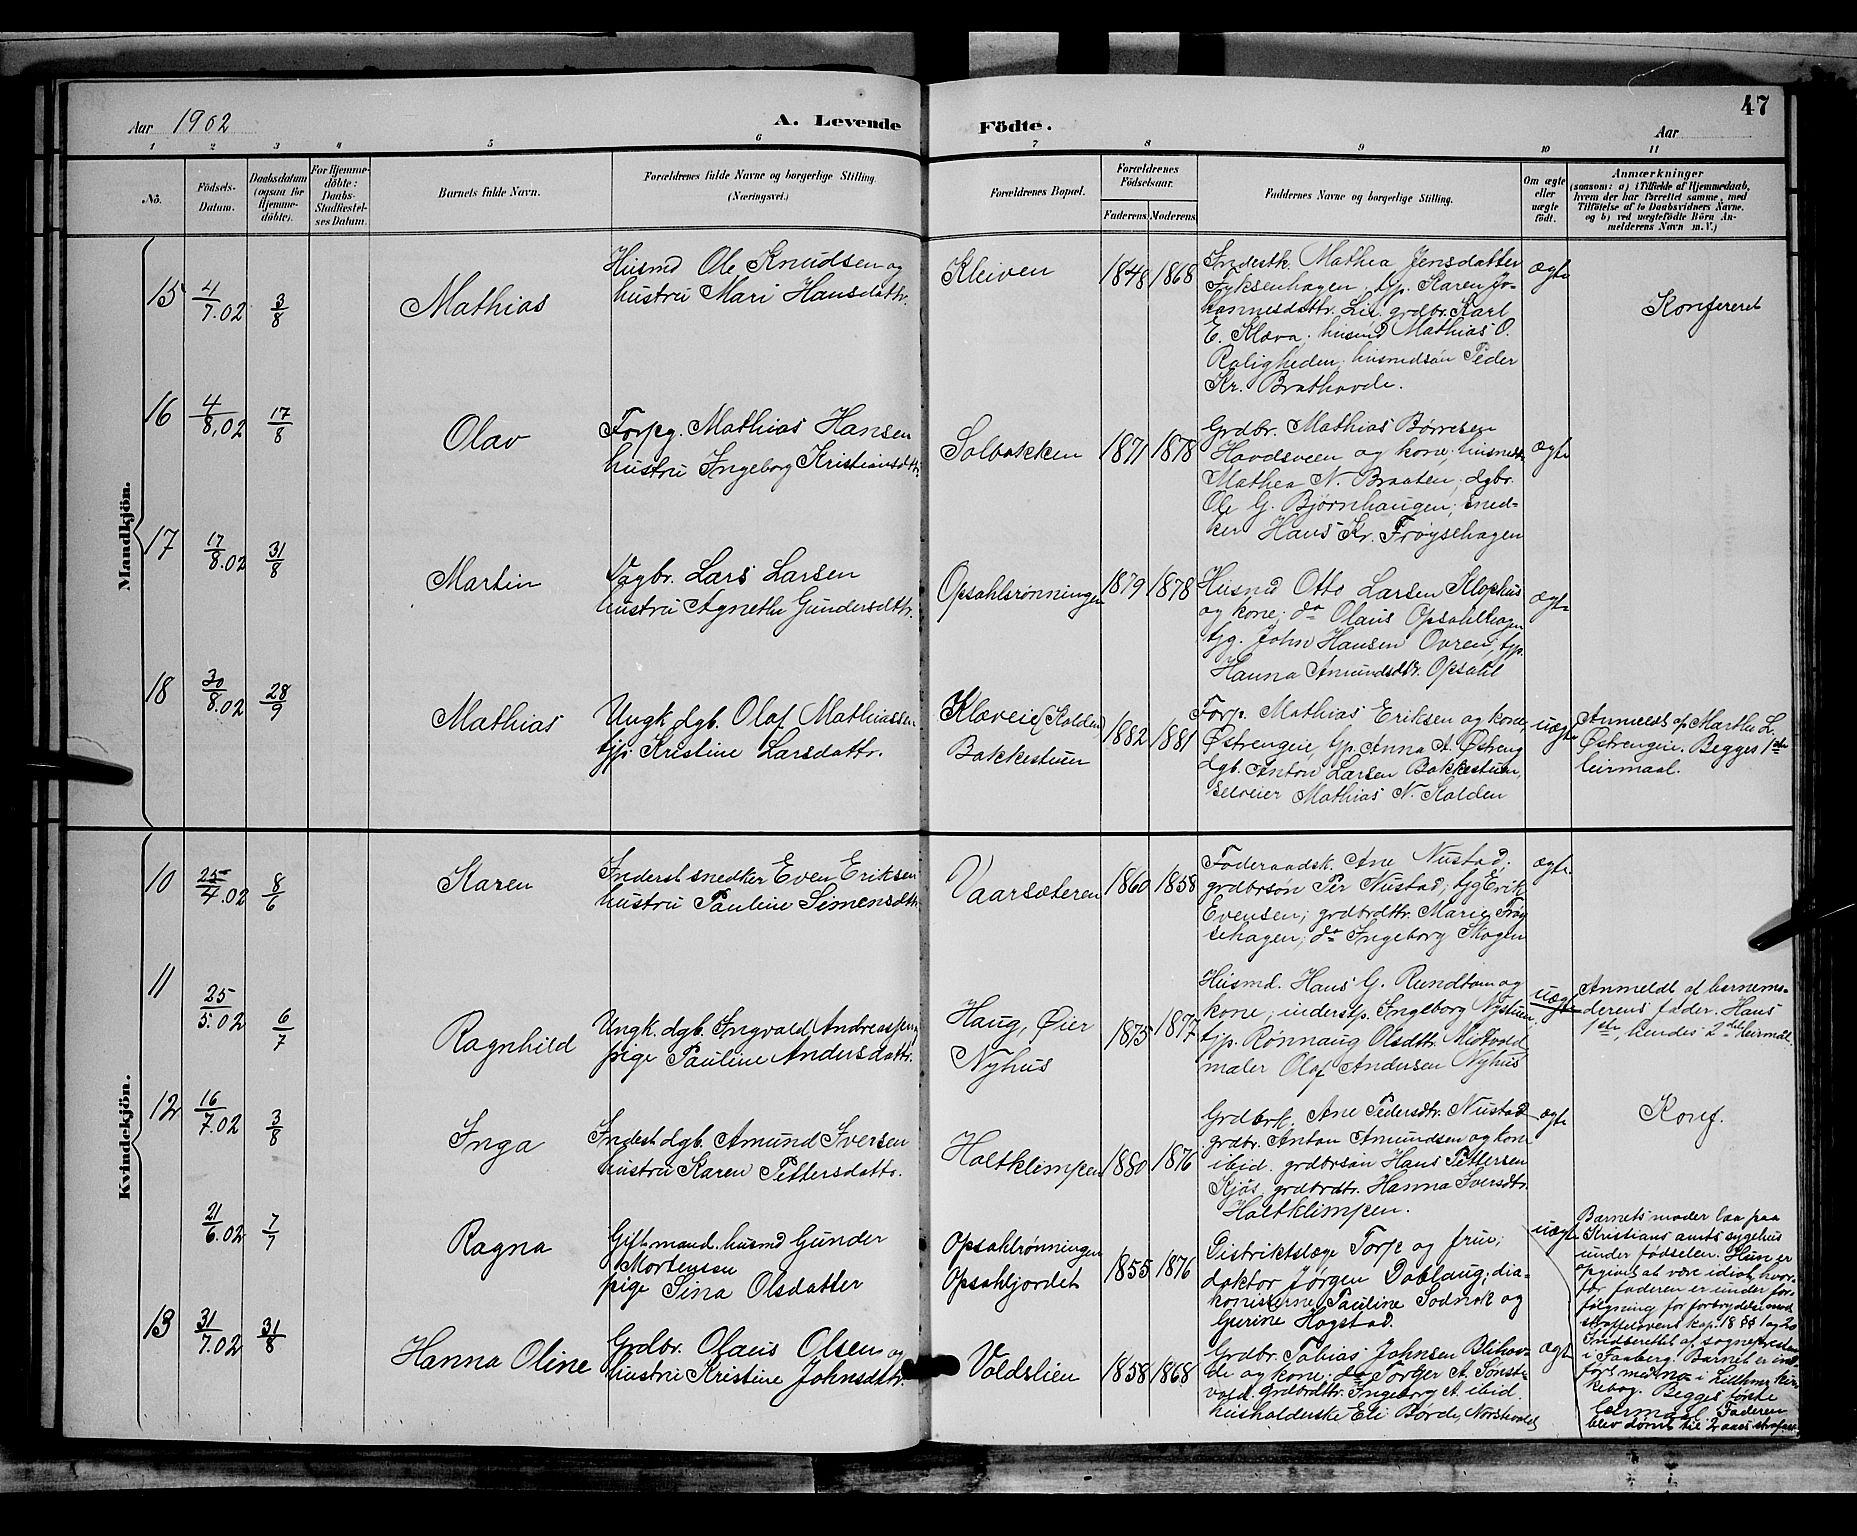 47
Aar 1902
A. Levende
Födte.
Aar
1 2 3 4 5 6 7 8 9 10 11
Nö.
Födsels-
Datum.
Daabsdatum
(ogsaa for
Hjemme-
döbte).
For Hjemme-
döbte:
Daabs-
Stadfæstel-
ses Datum.
Barnets fulde Navn.
Forældrenes fulde Navne og borgerlige Stilling.
(Næringsvei.)
Forældrenes Bopæl.
Forældrenes
Födselsaar.
Faderens. Moderens.
Faddernes Navne og borgerlige Stilling.
Om ægte
eller
uægte
födt.
Anmærkninger
(saasom: a) i Tilfælde af Hjemmedaab,
hvem der har forrettet samme, med
Tilföielse af to Daabsvidners Navne,
og b) ved uægtefödte Börn An-
melderens Navn m. V.)
Mandkjön.
15
4/7.02
3/8
Mathias
Husmd Ole Knudsen og
hustru Mari Hansdattr.
Kleiven
1848 1868
Inderstk. Mathea Jensdatter
Fyksenhagen, tjp. Karen Jo-
hannesdattr. Lie. grdbr. Karl
E. Klæva, husmd Mathias O.
Roligheden, husmdsøn Peder
Kr. Brathovde.
ægte
Konfereret
16
4/8.02
17/8
Olav
Torpg. Mathias Hansen
hustru Ingeborg Kristiansdttr.
Solbakken
1871 1878
Grdbr. Mathias Børresen
Hovdsveen og kone, husmdk
Mathea N. Braaten, dgbr.
Ole G. Bjørnhaugen; sned-
ker Hans Kr. Frøysehagen
ægte
17
17/8.02
31/8
Martin
Dagbr. Lars Larsen
hustru Agnethe Gundersdttr.
Opsahlsrønningen
1879 1878
Husmd Otto Larsen Klophus
og kone; do Olaus Opsahlhagen
tjg. John Hansen Ovren, tjp.
Hanna Amundsdtr. Opsahl
ægte
18
30/8.02
28/9
Mathias
Ungk. dgb. Olaf Mathiassen
tjp. Kristine Larsdattr.
Klæveie (Kolden)
Bakkestuen
1882 1881
Torp. Mathias Eriksen og kone,
Østrengeie, tjp. Anna A. Østreng
dgb. Anton Larsen Bakkestuen,
selveier Mathias N. Kolden
uægte
Anmeldt af Marthe L.
Østrengeie. Begges 1ste
leirmaal.
Kvindekjön.
10
25/4.02
8/6
Karen
Inderst snedker Even Eriksen
hustru Pauline Simensdttr.
Vaarsæteren
1860 1858
Føderaadsk. Ane Nustad;
grdbrsøn Per Nustad; tjg Erik
Evensen; grdbrdttr. Marie Frøy-
sehagen; do Ingeborg Skogen
ægte
11
25/5.02
6/7
Ragnhild
Ungk. dgb. Ingvald Andreassen
pige Pauline Andersdattr.
Haug, Øier
Nyhus
1875 1877
Husmd. Hans G. Rundtom og
kone; inderstp. Ingeborg Nystuen,
tjp. Rønnaug Olsdttr. Midtvold
maler Olaf Andersen Nyhus
uægte
Anmeldt af barnemo-
derens fader. Hans
1ste, hendes 2det leirmål.
12
16/7.02
3/8
Inga
Inderst dgb. Amund Iversen
hustru Karen Pettersdattr.
Holtklimpen
1880 1876
Grdbrk. Ane Pedersdtr. Nustad
grdbr. Anton Amundsen og kone
ibid. grdbrsøn Hans Pettersen
Kjøs, grdbrdtr. Hanna Iversdtr.
Holtklimpen.
ægte
Konf.
21/6.02
7/7
Ragna
Gift mand. husmd Gunder
Mortensen
pige Sina Olsdatter
Opsahlrønningen
Opsahljordet
1855 1876
Distriktslæge Torp og frue;
doktor Jørgen Dahlaug; dia-
konisserne Pauline Sodnak og
Gurine Hogstad.
uægte
Barnets moder laa paa
Kristians amts sygehus
under fødselen. Hun er
opgivet at være idiot, hvor-
for faderen er under for-
følgning for forbrydelse mod
straffelovens kap. 18 §§ 1 og 20
Indberettet af sognepresten
i Faaberg. Barnet er ind-
ført med no i Lillhmr. kir-
kebog. Begges første
leirmaal. Faderen
blev dømt til 2 aars strafar-
13
31/7.02
31/8
Hanna Oline
Grdbr. Olaus Olsen og
hustru Kristine Johnsdttr.
Voldslien
1858 1868
Grdbr. Tobias Johnsen Blihov-
de og kone; do Torger A. Sønst-
vold. Grdbrdttr. Ingeborg A. ibid
husholderske Eli Børde, Norshovde
ægte